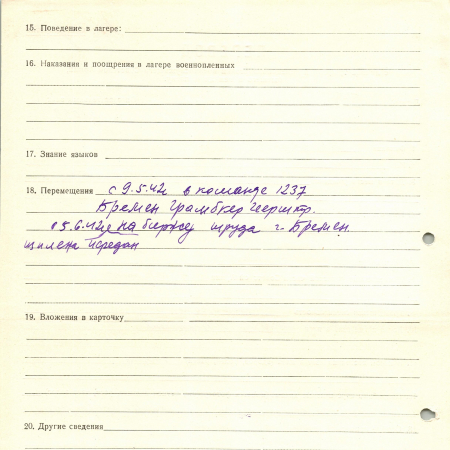 15. Поведение в лагере:
16. Наказания и поощрения в лагере военнопленных
17. Знание языков
18. Перемещения с 9.5.42г в команде 1237
Бремен Грамбкер Геерштр.
05.6.42г на биржу труда г. Бремен
передан
19. Вложения в карточку
20. Другие сведения